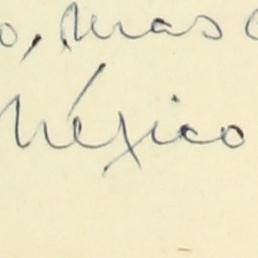 o, mas
México